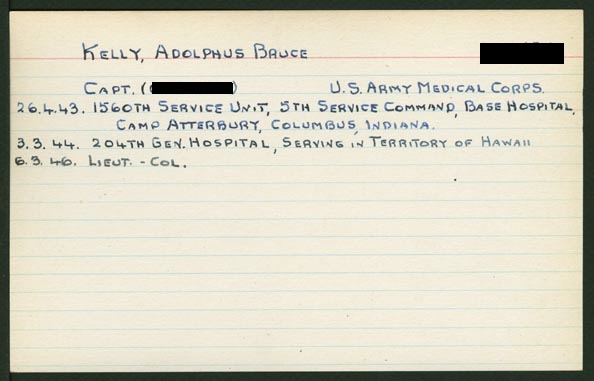 KELLY, ADOLPHUS BRUCE
CAPT. ( ) U.S. ARMY MEDICAL CORPS.
26.4.43. 1560TH SERVICE UNIT, 5TH SERVICE COMMAND, BASE HOSPITAL,
CAMP ATTERBURY, COLUMBUS, INDIANA.
3.3.44. 204TH GEN. HOSPITAL, SERVING IN TERRITORY OF HAWAII
6.3.46. LIEUT. - COL.